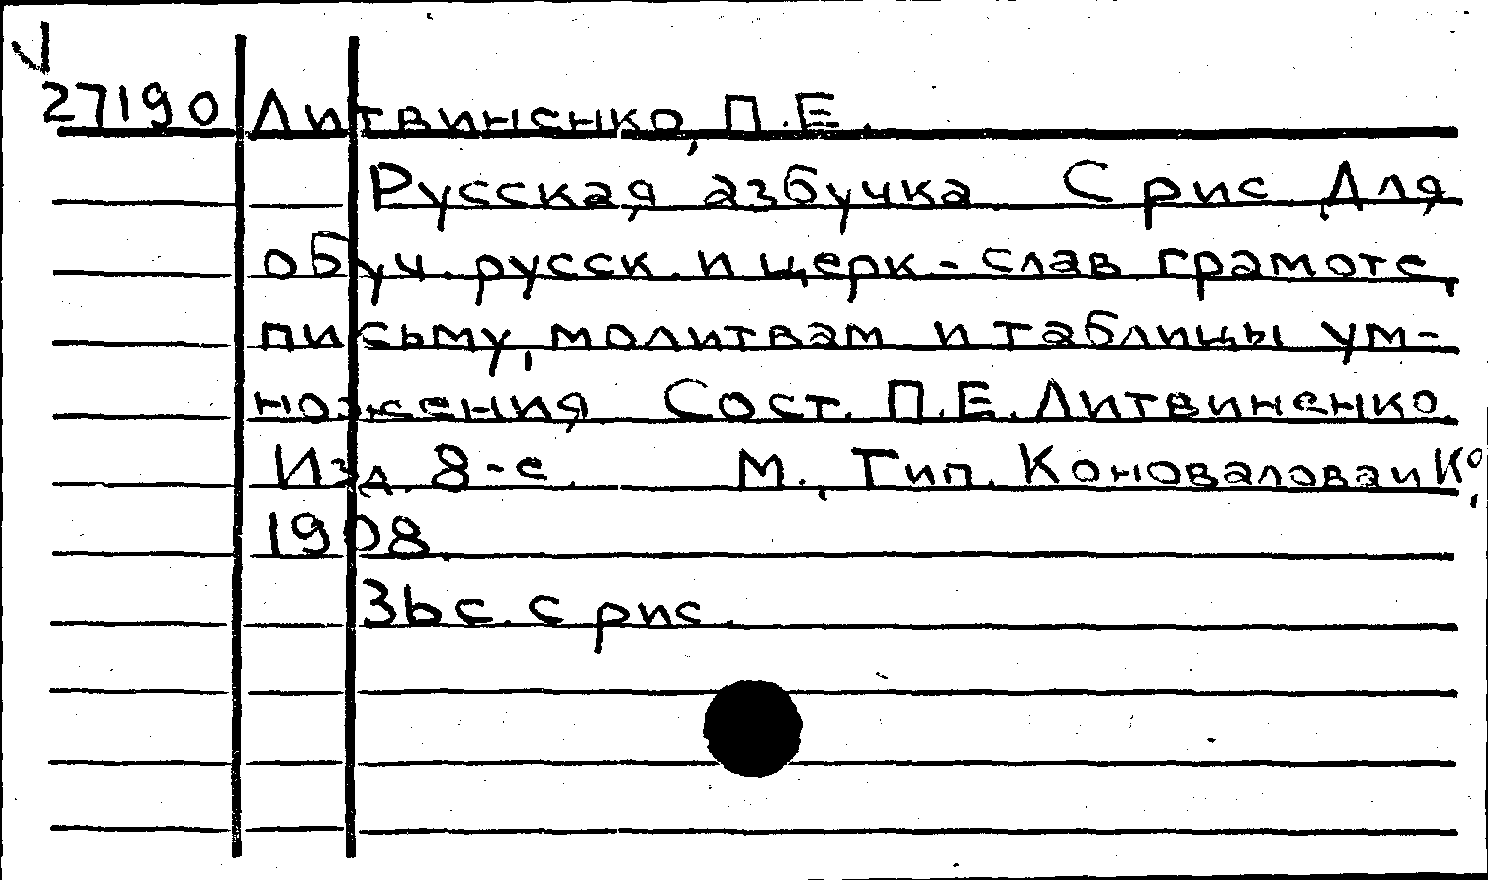 27190 Литвиненко, П.Е.
Русская азбучка С рис Для
обуч. русск. и церк-слав грамоте,
письму, молитвам и таблицы ум-
ножения Сост. П.Е. Литвиненко.
Изд. 8-е. М., Тип. Коновалова и К°,
1908.
36 с. с рис.